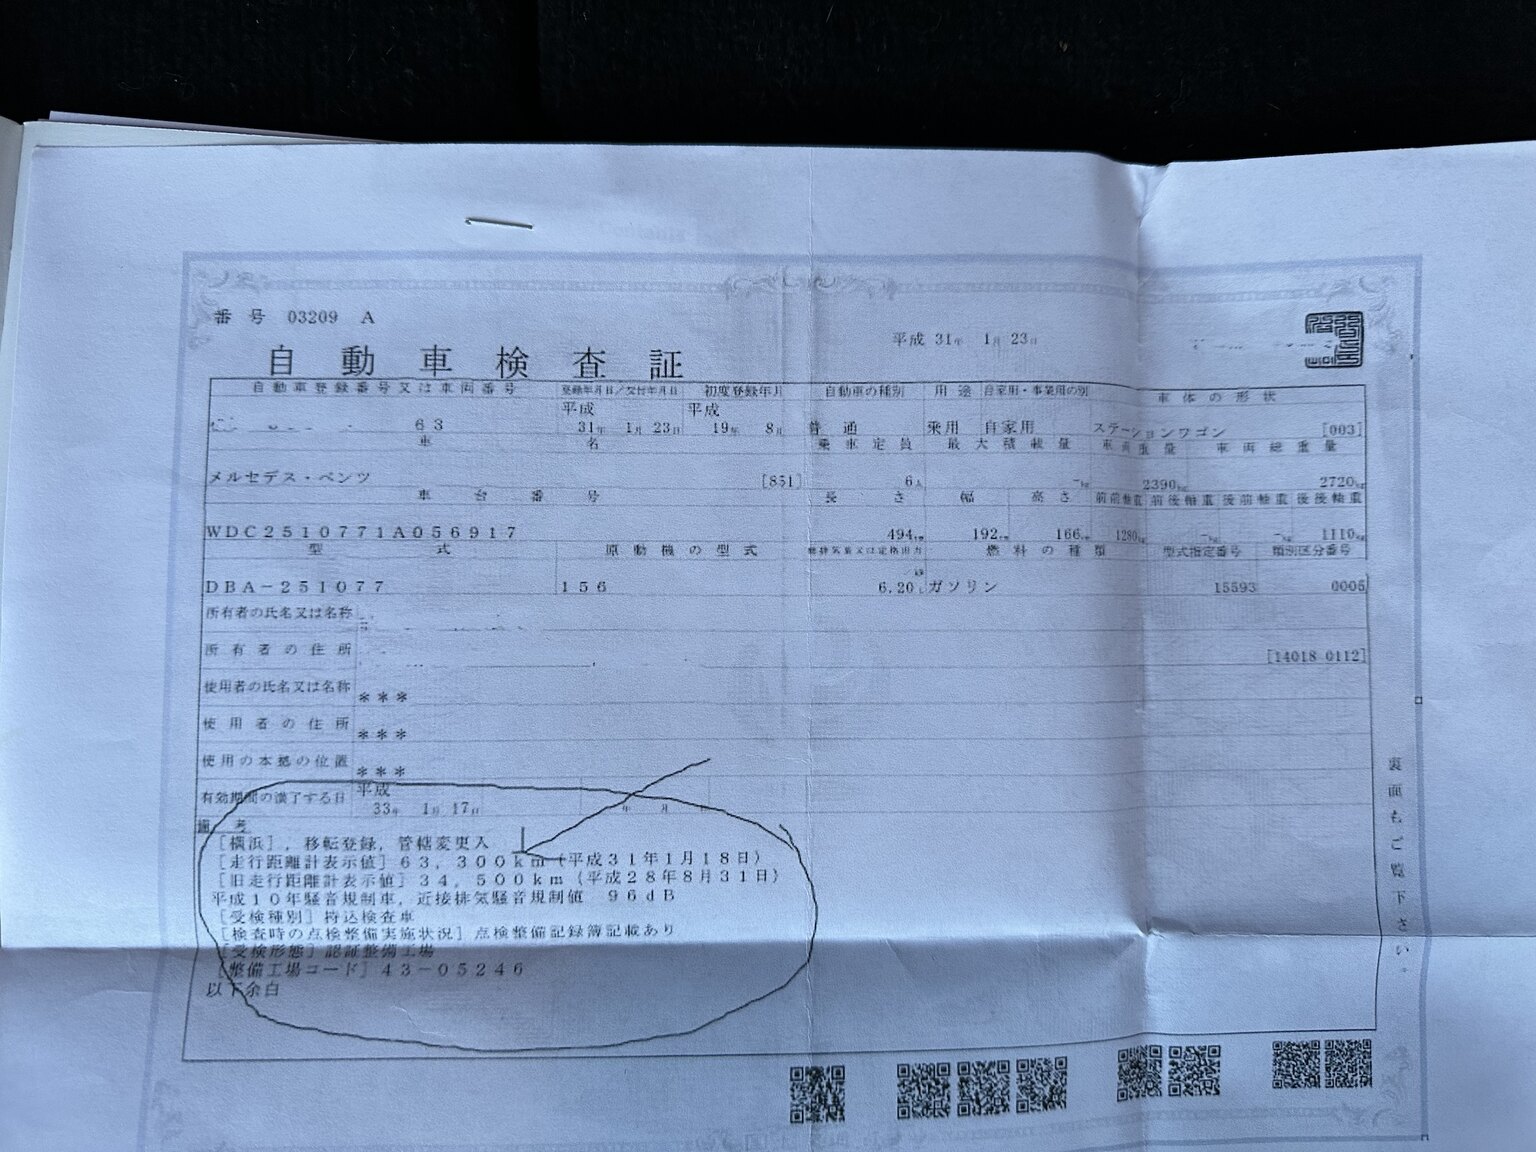 番号 03209 A
平成 31年 1月 23日
自動車検査証
自動車登録番号又は車両番号 登録年月日/交付年月日 初度登録年月 自動車の種別 用途 自家用・事業用の別 車体の形状
平成 平成
63 31年 1月 23日 19年 8月 普通 乗用 自家用 ステーションワゴン [003]
車名 乗車定員 最大積載量 車両重量 車両総重量
メルセデス・ベンツ [851] 6人 -kg 2390kg 2720kg
車台番号 長さ 幅 高さ 前前軸重 前後軸重 後前軸重 後後軸重
WDC2510771A056917 494cm 192cm 166cm 1280kg -kg -kg 1110kg
型式 原動機の型式 総排気量又は定格出力 燃料の種類 型式指定番号 類別区分番号
kW
DBA-251077 156 6.20L ガソリン 15593 0005
所有者の氏名又は名称
所有者の住所 [14018 0112]
使用者の氏名又は名称 ***
使用者の住所 ***
使用の本拠の位置 ***
有効期間の満了する日 平成 33年 1月 17日 年 月
備考
[横浜],移転登録,管轄変更入
[走行距離計表示値]63,300km(平成31年1月18日)
[旧走行距離計表示値]34,500km(平成28年8月31日)
平成10年騒音規制車,近接排気騒音規制値 96dB
[受検種別]持込検査車
[検査時の点検整備実施状況]点検整備記録簿記載あり
[受検形態]認証整備工場
[整備工場コード]43-05246
以下余白
裏面もご覧下さい。